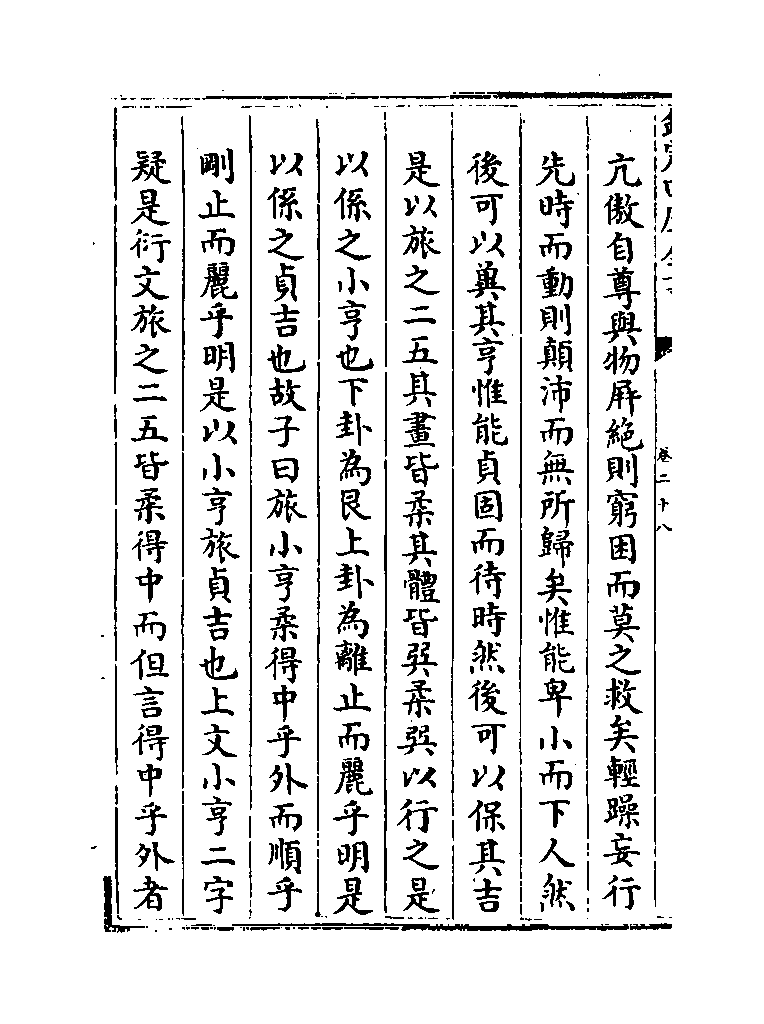 亢傲自尊與物屏絶則窮困而莫之救矣輕躁妄行
先時而動則顛沛而無所歸矣惟能卑小而下人然
後可以兾其亨惟能貞固而待時然後可以保其吉
是以旅之二五其畫皆柔其體皆巽柔巽以行之是
以係之小亨也下卦為艮上卦為離止而麗乎明是
以係之貞吉也故子曰旅小亨柔得中乎外而順乎
剛止而麗乎明是以小亨旅貞吉也上文小亨二字
疑是衍文旅之二五皆柔得中而但言得中乎外者
卷二十八